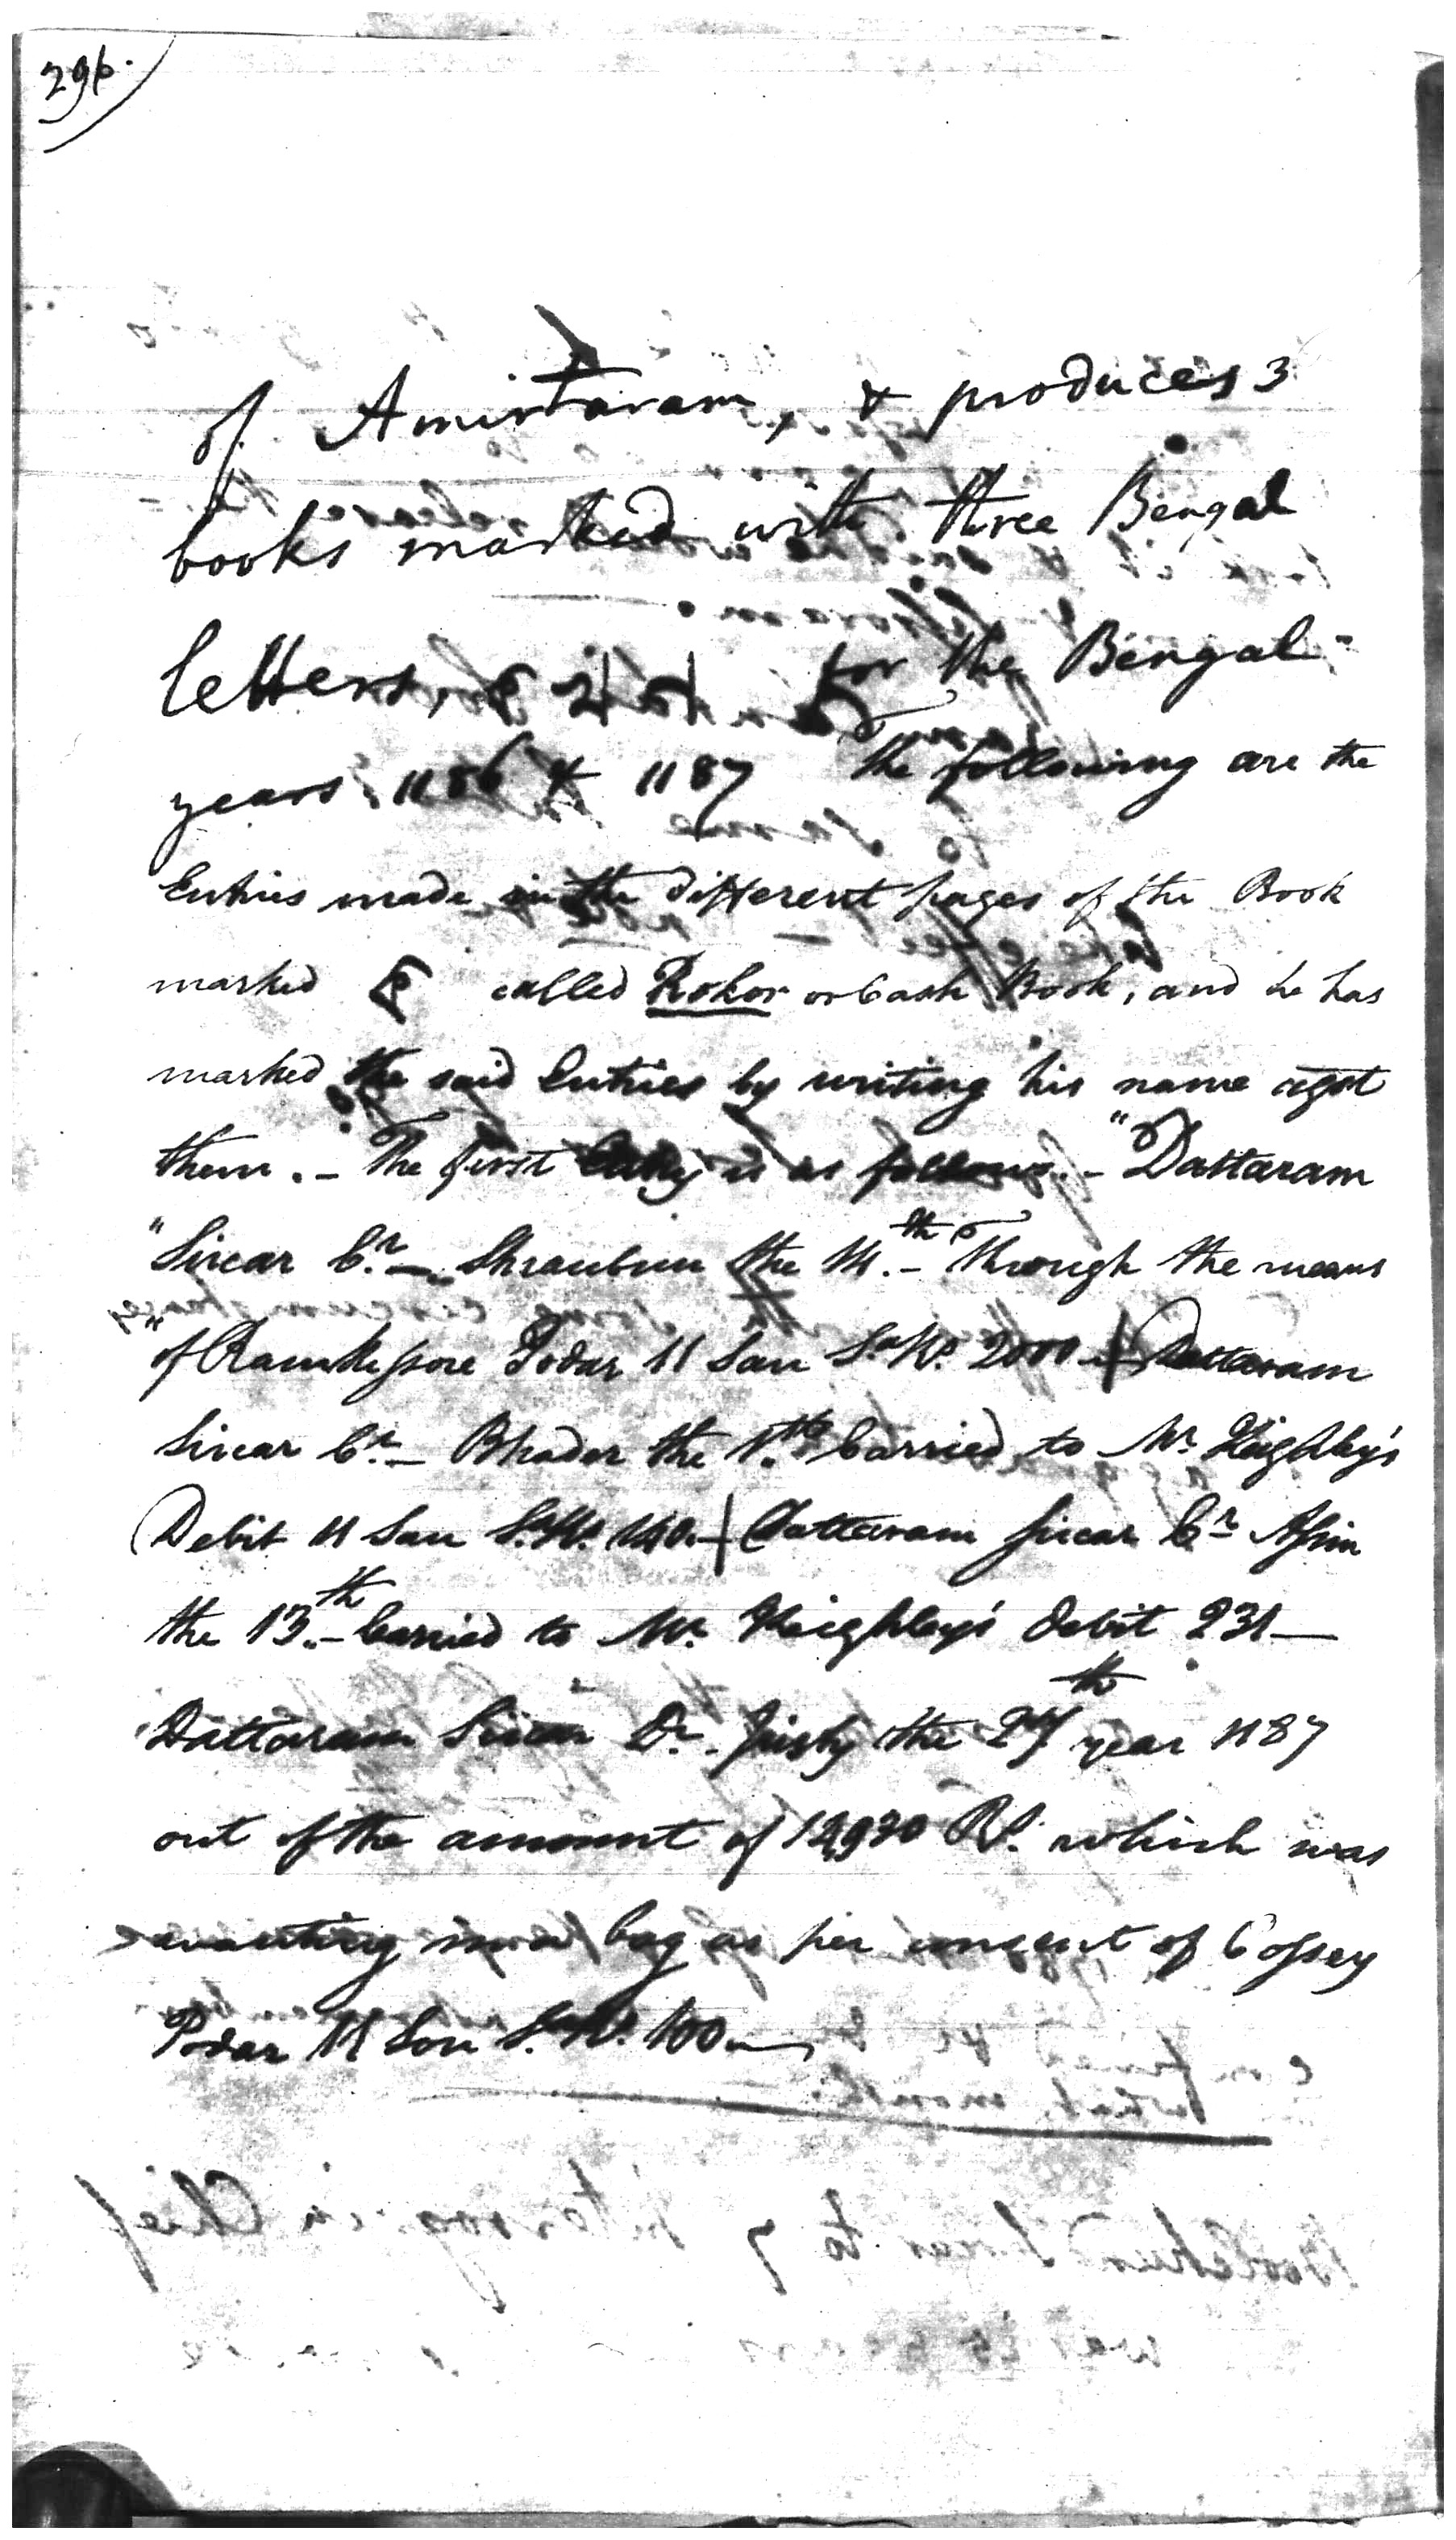 296.
of Amirtaram, & produces 3
books marked with three Bengal
letters, for the Bengal
years 1186 & 1187 The following are the
Entries made in the different pages of the Book
marked called Rokor or Cash Book, and he has
marked the said Entries by writing his name agst
them. - The first Entry is as follows. - "Dattaram
"Sircar Cr. - the 11th. - through the means
"of Ramkissore Podar 11 San Sa. Rs. 2000 - Dattaram
Sircar Cr. - Bhader the 1.th Carried to Mr. Keighley's
Debit 11 San Sa. Rs. 140. - Dattaram Sircar Cr. Assin
the 13.th - Carried to Mr. Keighley's debit 231 -
Dattaram Sircar Dr. the 27th year 1187
out of the amount of 12,930 Rs. which was
wanting in a bag as per consent of Cossey
Podar 11 Son Sa. Rs. 100 -